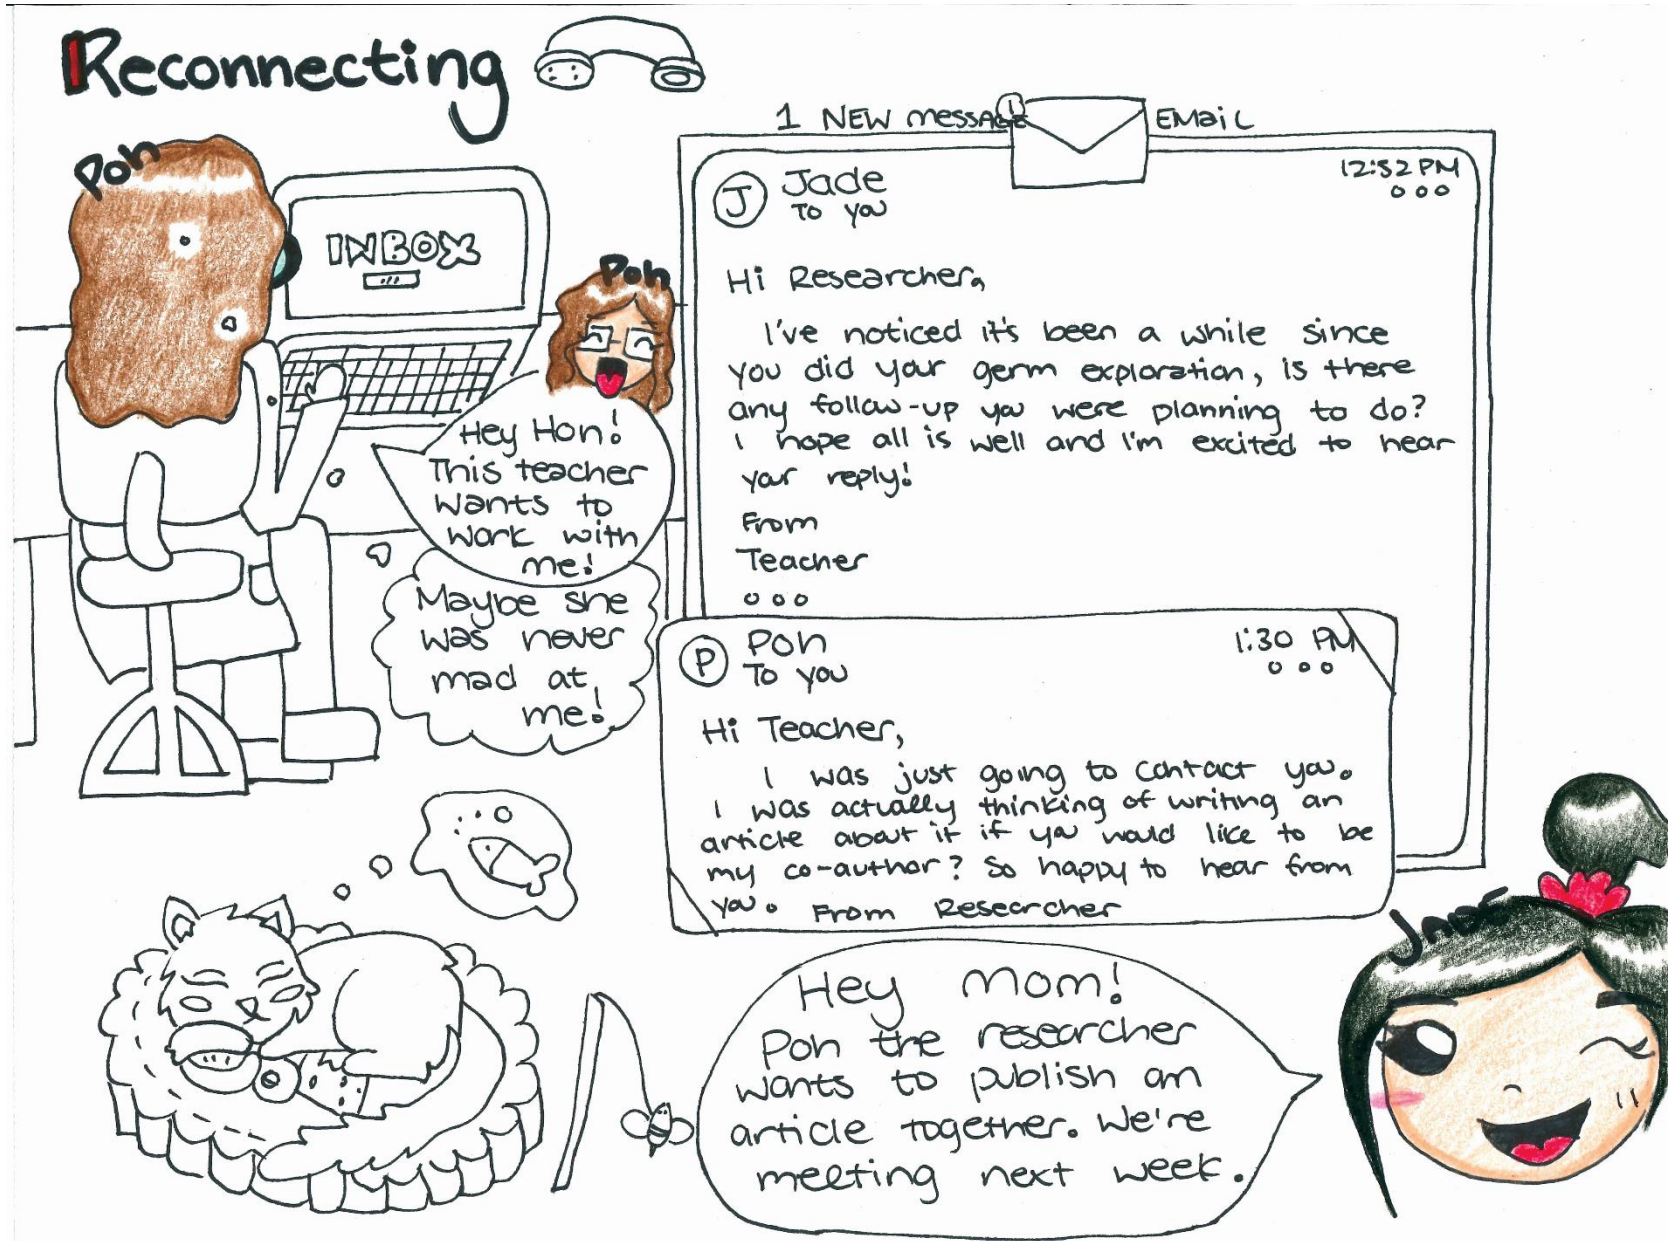 Reconnecting
Poh
INBOX
Poh
Hey Hon!
This teacher
wants to
work with
me!
Maybe she
was never
mad at
me!
1 NEW messAGe
1
EMaiL
12:52 PM
J
Jade
To you
Hi Researcher,
I've noticed it's been a while since
you did your germ exploration, is there
any follow-up you were planning to do?
I hope all is well and I'm excited to hear
your reply!
From
Teacher
P
Poh
To you
1:30 PM
Hi Teacher,
I was just going to contact you.
I was actually thinking of writing an
article about it if you would like to be
my co-author? So happy to hear from
you. From Researcher
Hey Mom!
Poh the researcher
wants to publish an
article together. We're
meeting next week.
Jade